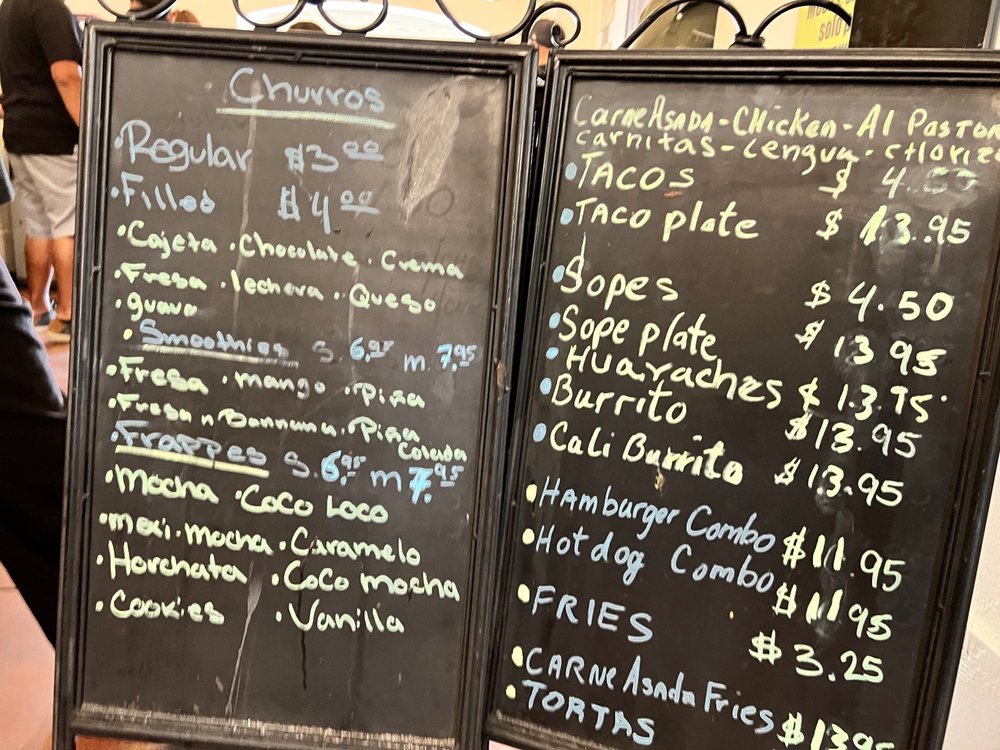 Churros
• Regular $3.00
• Filled $4.00
• Cajeta • Chocolate • Crema
• Fresa • lechera • Queso
• guava
• Smoothies S. 6.95 m. 7.95
• Fresa • mango • piña
• Fresa n Bannana • Piña Colada
• Frappes S. 6.95 m 7.95
• Mocha • Coco Loco
• mexi-mocha • Caramelo
• Horchata • CoCo mocha
• Cookies • Vanilla
CarneAsada - Chicken - Al Pastor
carnitas - Lengua - chorizo
• TACOS $ 4.50
• TACO plate $ 13.95
• Sopes $ 4.50
• Sope plate $ 13 95
• Huaraches $ 13.95
• Burrito $13.95
• Cali Burrito $13.95
• Hamburger Combo $11.95
• Hotdog Combo $11.95
• FRIES $3.25
• CARNE Asada Fries $13.95
• TORTAS